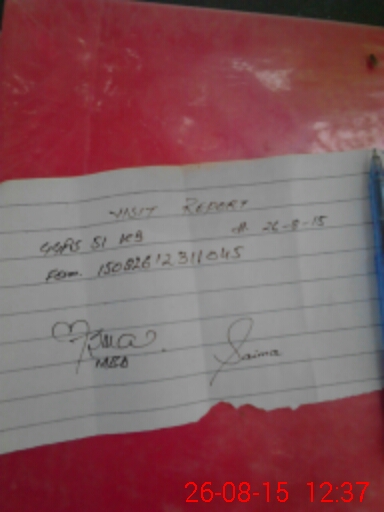 VISIT REPORT
dt. 26-8-15
GGPS 51 KB
Fem. 15082612311045
Saima
26-08-15 12:37